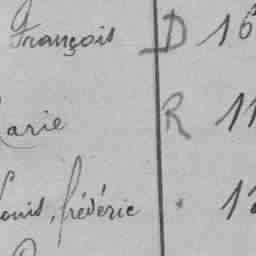 François D 16
arie R 11
ouis, frédéric . 12